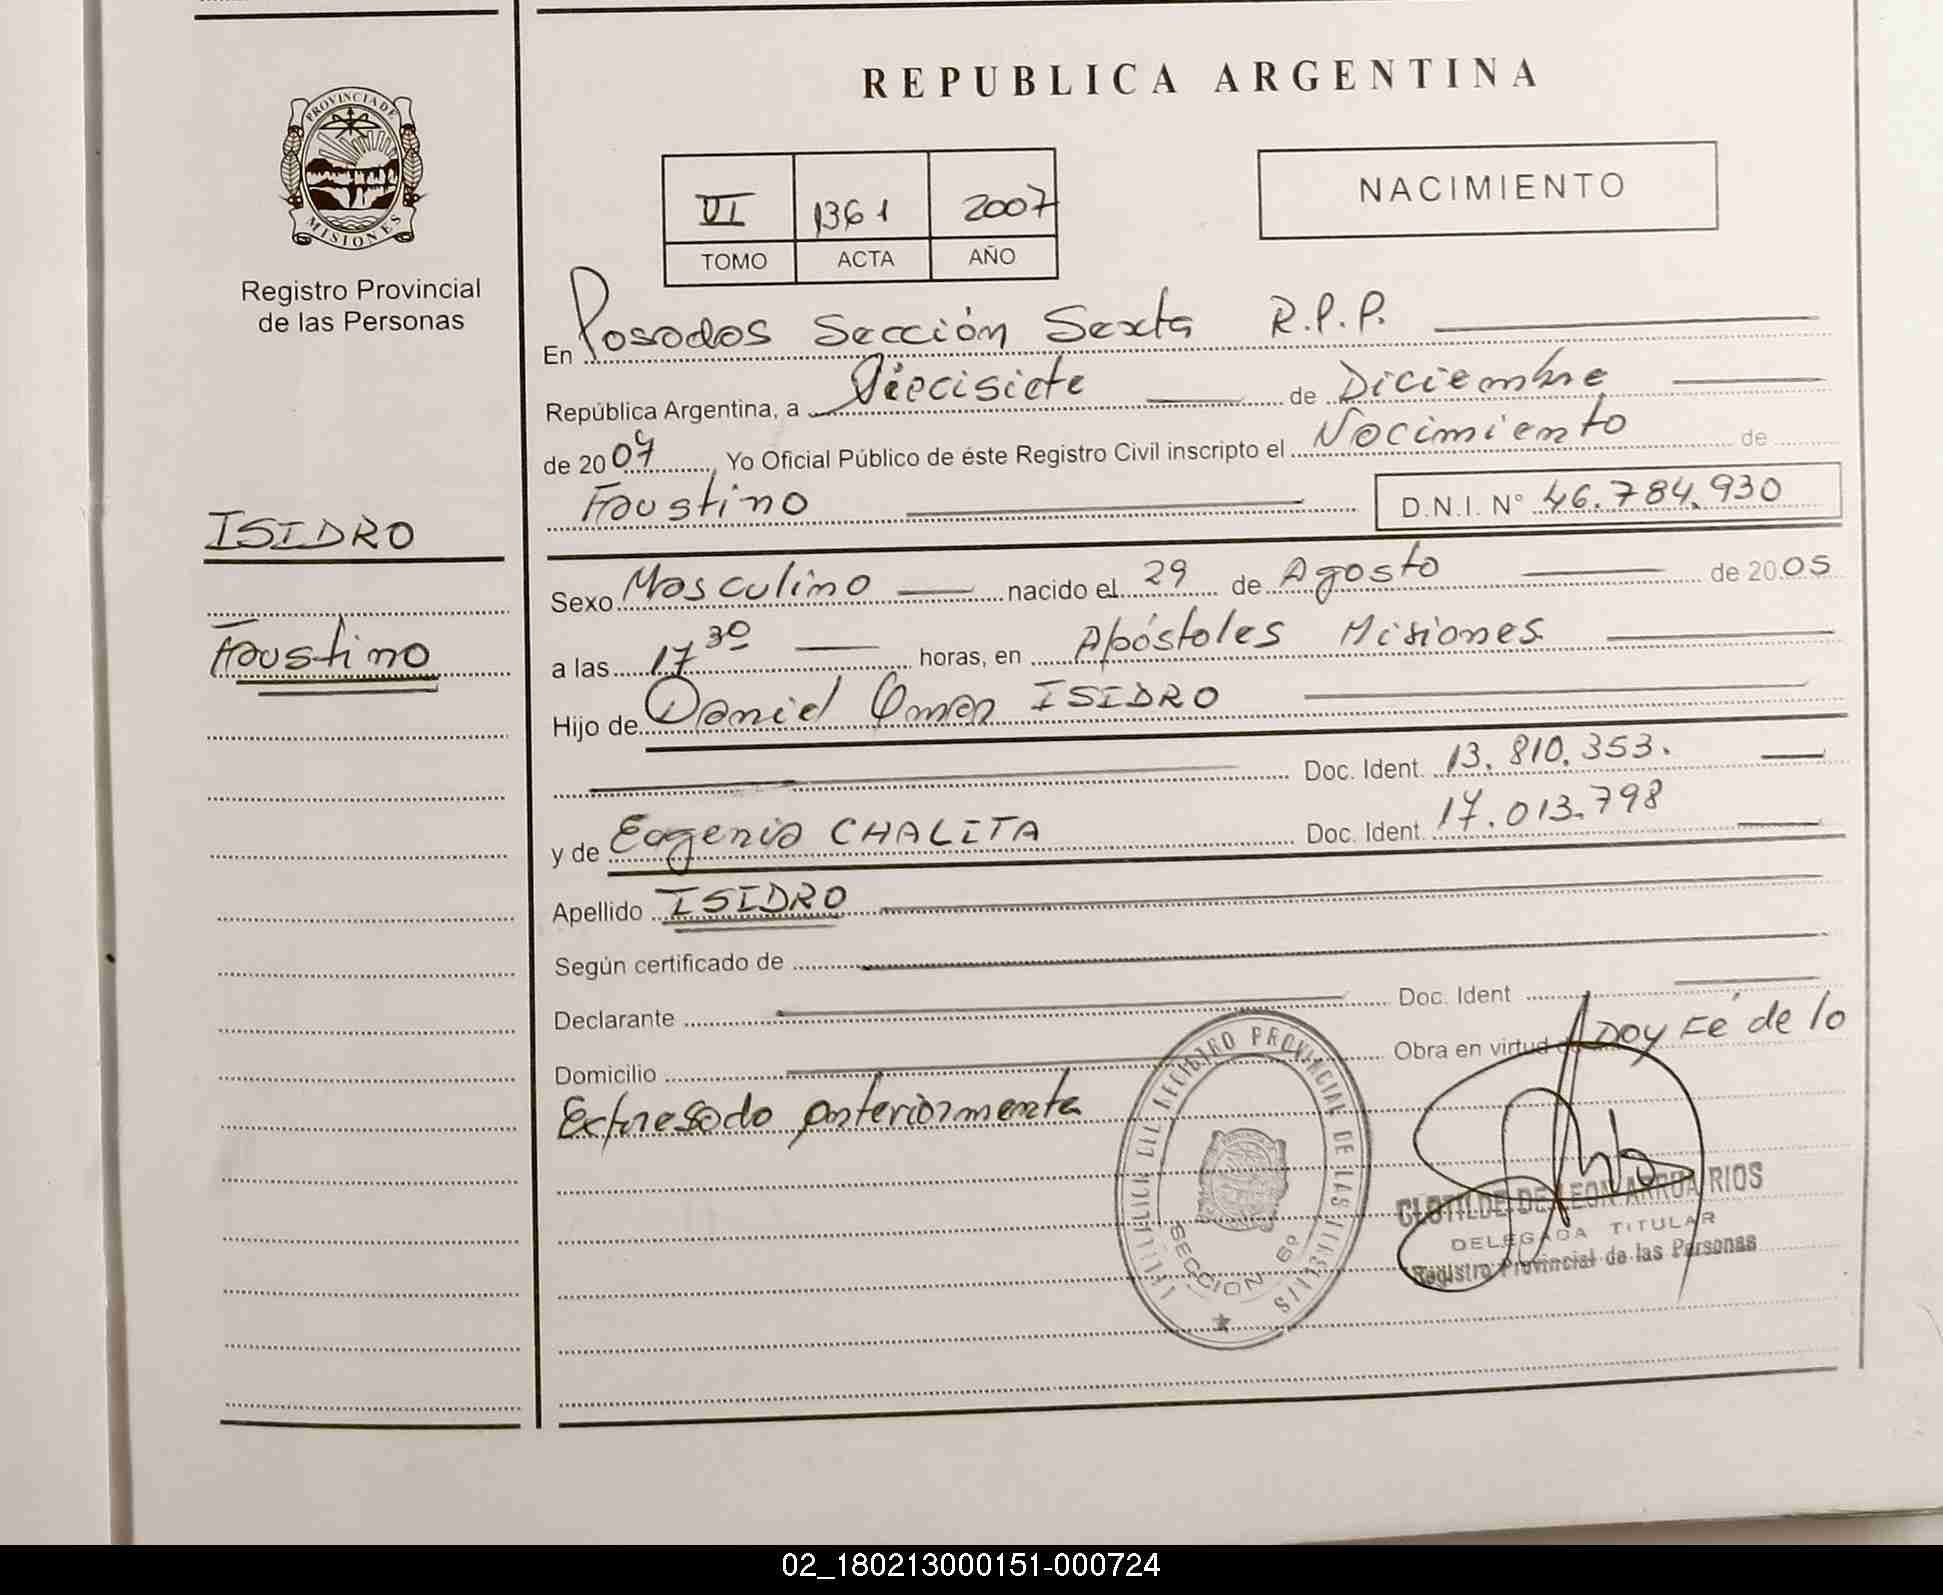 REPUBLICA ARGENTINA
PROVINCIA DE
MISIONES
Registro Provincial
de las Personas
NACIMIENTO
VI 1361 2007
TOMO ACTA AÑO
En Posadas Sección Sexta R.P.P.
República Argentina, a Diecisiete de Diciembre
de 2007, Yo Oficial Público de éste Registro Civil inscripto el Nacimiento de
Faustino D.N.I. Nº 46.784.930
ISIDRO
Faustino
Sexo Masculino nacido el 29 de Agosto de 2005
a las 17 30 horas, en Apóstoles Misiones
Hijo de Daniel Omar ISIDRO
Doc. Ident. 13.810.353.
y de Eugenia CHALITA Doc. Ident. 17.013.798
Apellido ISIDRO
Según certificado de
Declarante Doc. Ident
Domicilio Obra en virtud de Doy Fé de lo
Expresado anteriormente
REGISTRO PROVINCIAL DE LAS PERSONAS
SECCION 6º
CLOTILDE DE LEON ARRUA RIOS
DELEGADA TITULAR
Registro Provincial de las Personas
02_180213000151-000724